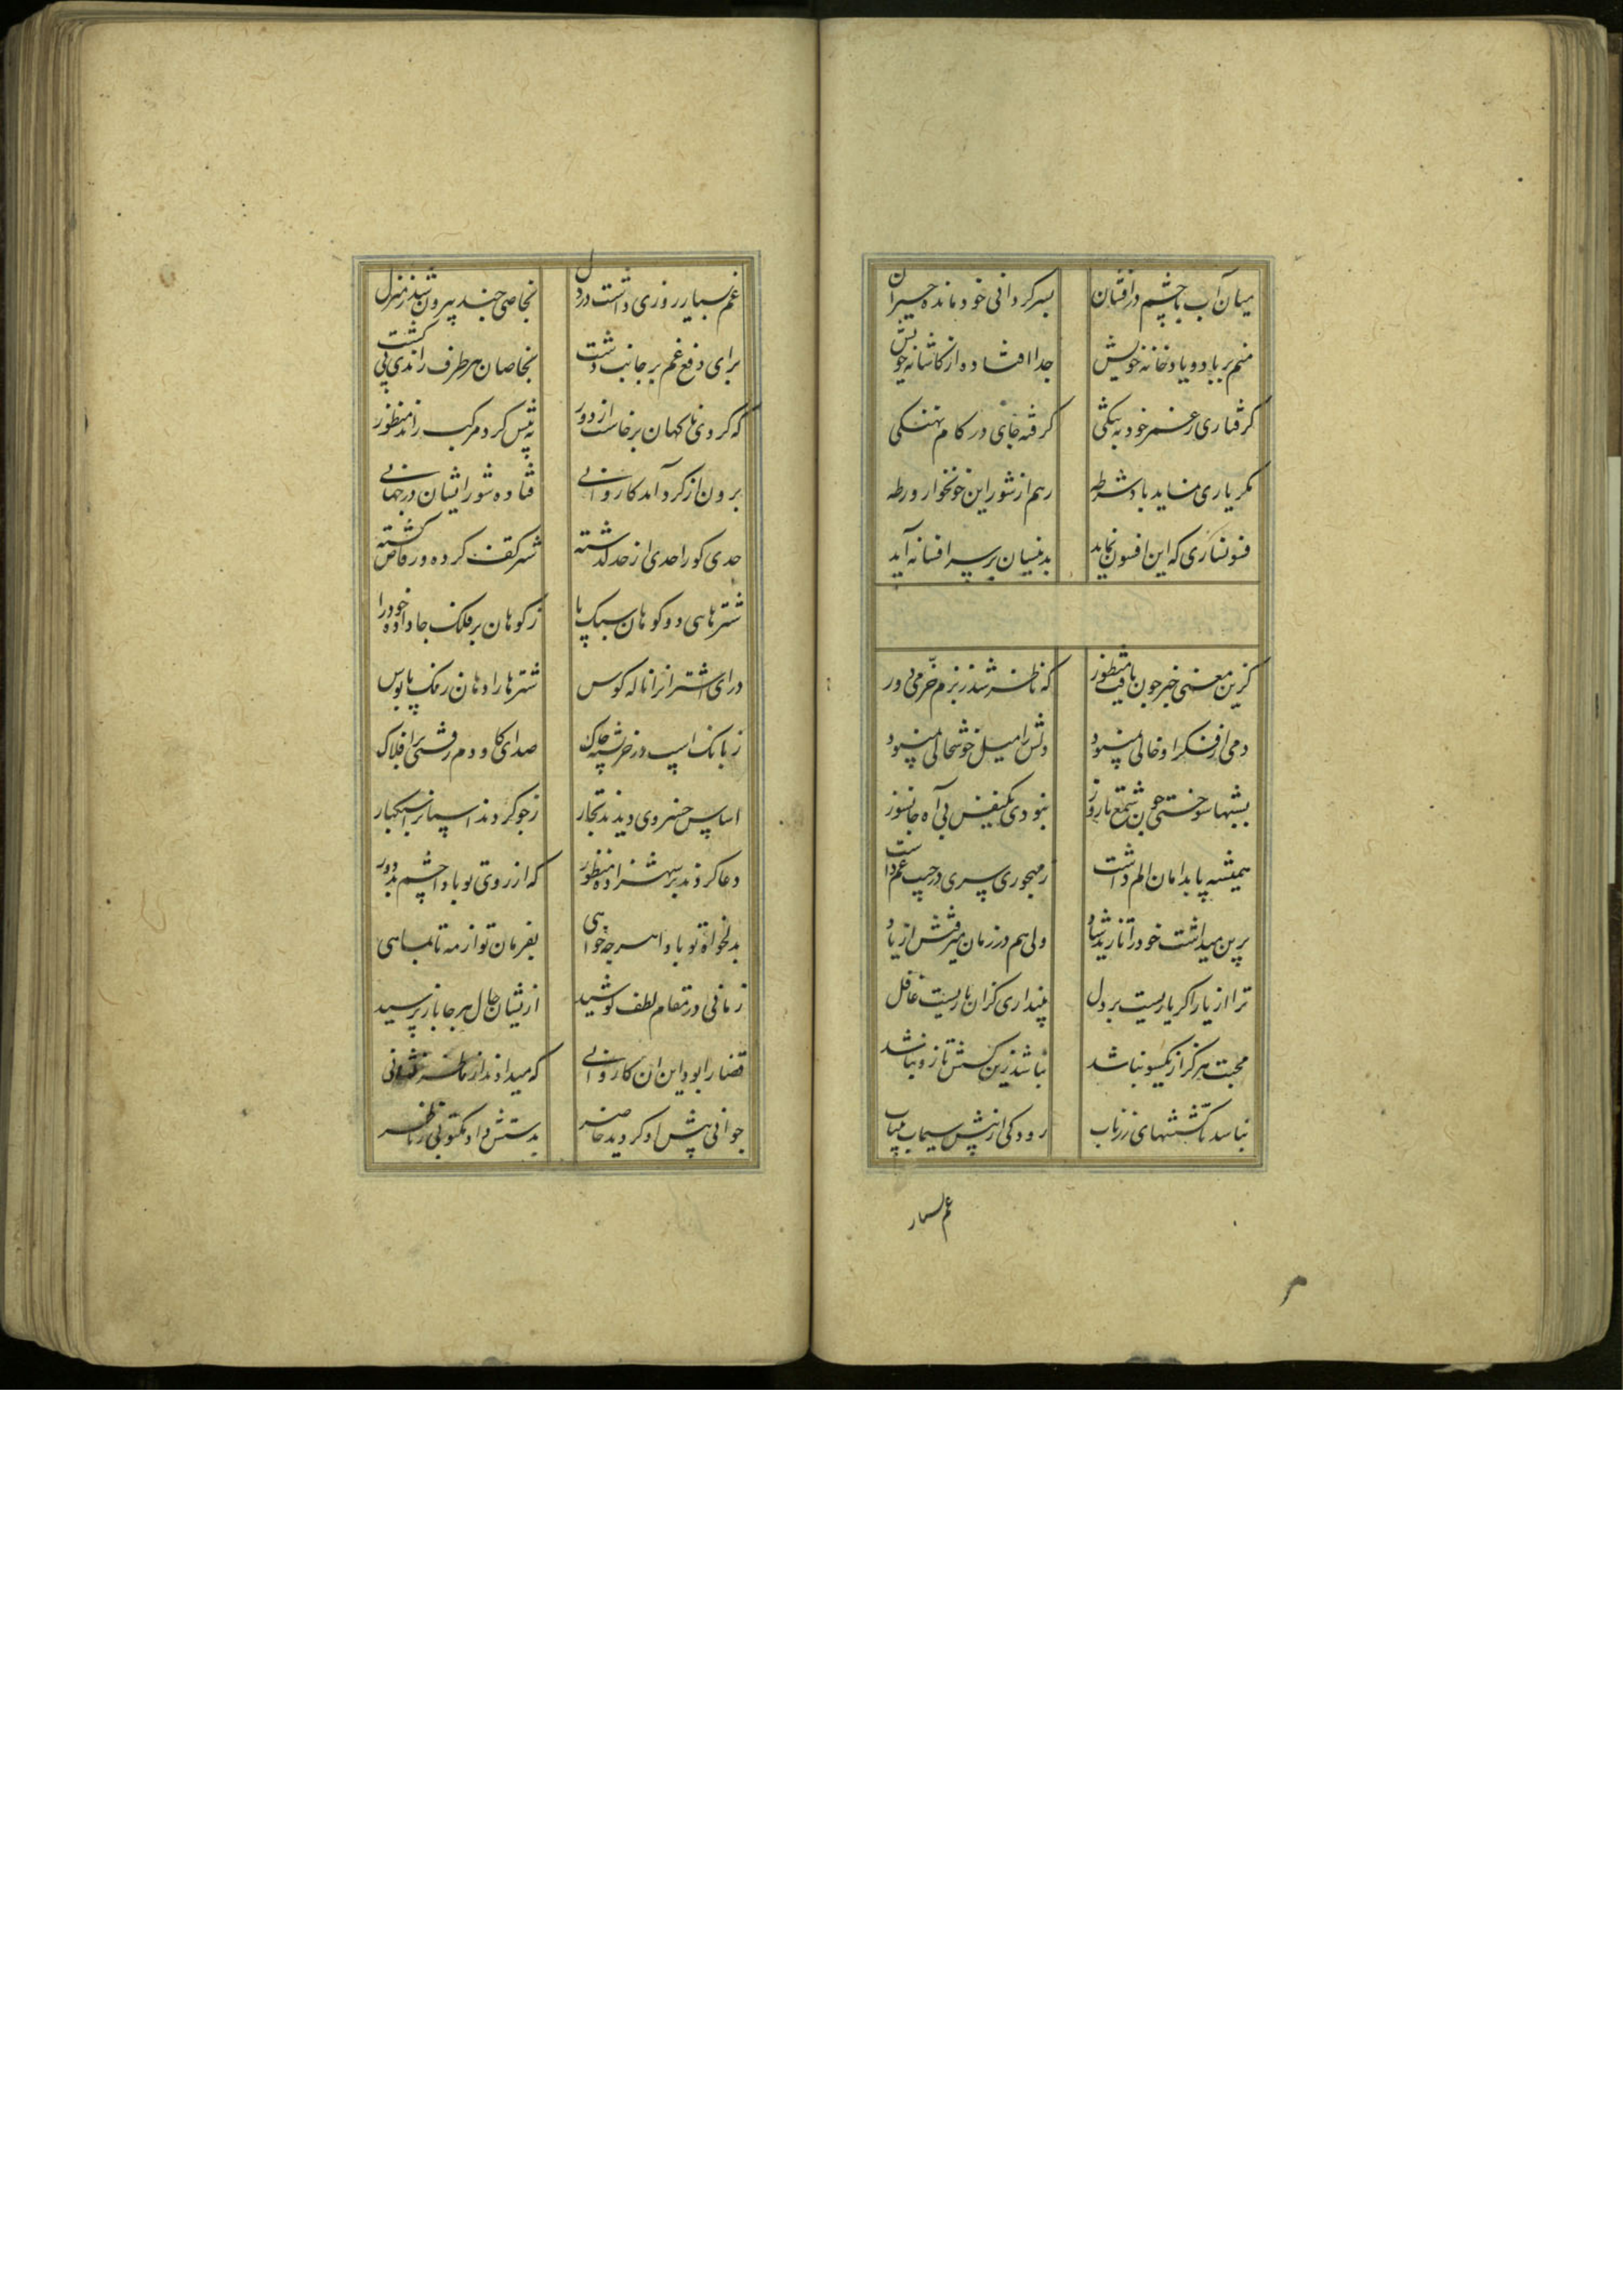 میان آب با چشم درافشان بسرکردانی خود مانده حیران
منم بر باد و یاد خانه خویش جدا افتاده از کاشانه خویش
کرفتاری ز عمر خود به تنکی کرفته جای در کام نهنکی
مکر یاری نماید باد شرطه رهم از شور این خونخوار ورطه
فسونسازی که این افسون نماید بدینسان بر سر افسانه آید
کزین معنی خبر چون یافت منظور که ناظر شد ز بزم خرمی دور
دمی از فکر او خالی نمیبود دلش را میل خوشحالی نمیبود
بشبها سوختی چون شمع تا روز نبودی یکنفس بی آه جانسوز
همیشه پا بدامان الم داشت ز مهجوری سری در جیب غم داشت
برین میداشت خود را تا زید شاد ولی هم در زمان میرفتش از یاد
ترا از یار اکر باریست بر دل نپنداری کزان باریست غافل
محبت هرکز از یکسو نباشد نباشد زین کشش تا زو نباشد
نباشد تا کششهای زر ناب رود کی از پیش سیماب بیتاب
غم بسیار
غم بسیار روزی داشت در دل بخاصی چند بیرون شد ز منزل
برای دفع غم بر جانب دشت بخاصان هر طرف راندی پی کشت
که کردی ناکهان برخاست از دور به پیش کرد مرکب راند منظور
برون از کرد آمد کاروانی فتاده شور ایشان در جهانی
حدی کو را حدی از حد کذشته شتر کف کرده و رقاص کشته
شترهای دو کوهان سبک پا ز کوهان بر فلک جا داده خود را
درای اشترانرا ناله کوس شترها را دهان رنک پابوس
ز بانک اسپ در خرپشته چاک صدای کاودم رفتی بر افلاک
اساس خسروی دیدند تجار ز جو کردند اسپانرا سبکبار
دعا کردند بر شهزاده منظور که از روی تو بادا چشم بد دور
بدلخواه تو بادا هر چه خواهی بفرمان تو از مه تا بماهی
زمانی در مقام لطف کوشید ازیشان حال هر جا باز پرسید
قضا را بود این آن کاروانی که میدادند از ناظر نشانی
جوانی پیش او کردید حاضر بدستش داد مکتوبی ز ناظر